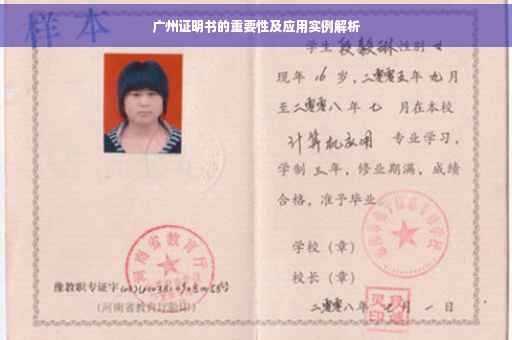 广州证明书的重要性及应用实例解析
样本
学生段毅琳性别女
现年16岁，二零零五年九月
至二零零八年七月在本校
计算机应用 专业学习，
学制三年，修业期满，成绩
合格，准予毕业。
学校（章）
校长（章）
二零零八年七月一日
河南省教育厅
豫教职专证字
（河南省教育厅验印）